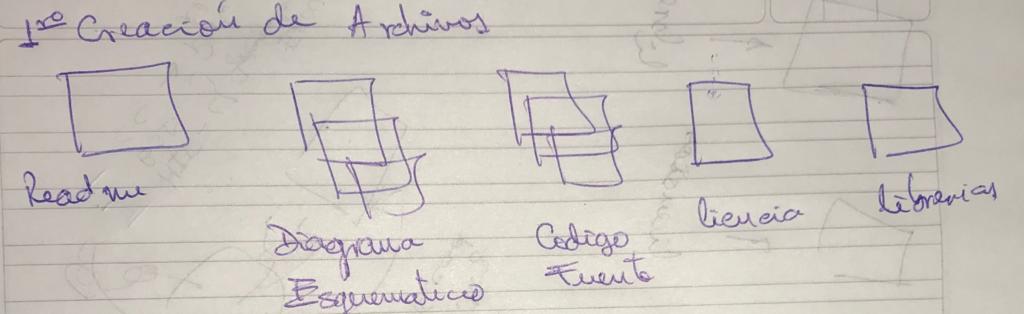 1ro Creación de Archivos
Readme
Diagrama
Esquematico
Codigo
Fuente
licencia
librerias